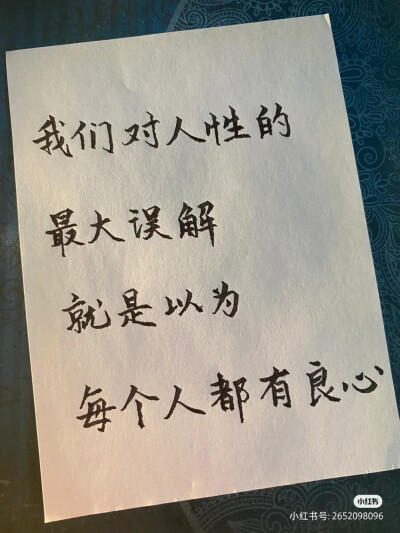 我们对人性的
最大误解
就是以为
每个人都有良心
小红书
小红书号: 2652098096